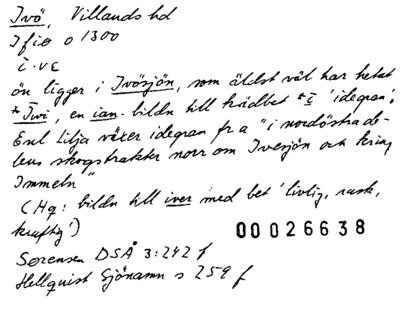 Ivö, Villands hd
Ifiø o 1300
i·vɛ
ön ligger i Ivösjön, som äldst väl har hetat
*Īwi, en ian-bildn till trädbet *ī 'idegran'.
Enl Lilja växer idegran fr a "i nordöstra de-
lens skogstrakter norr om Ivesjön och kring
Immeln"
(Hq: bildn till iver med bet 'livlig, rask,
kraftig')
00026638
Sørensen DSÅ 3:242 f
Hellquist Sjönamn s 259 f